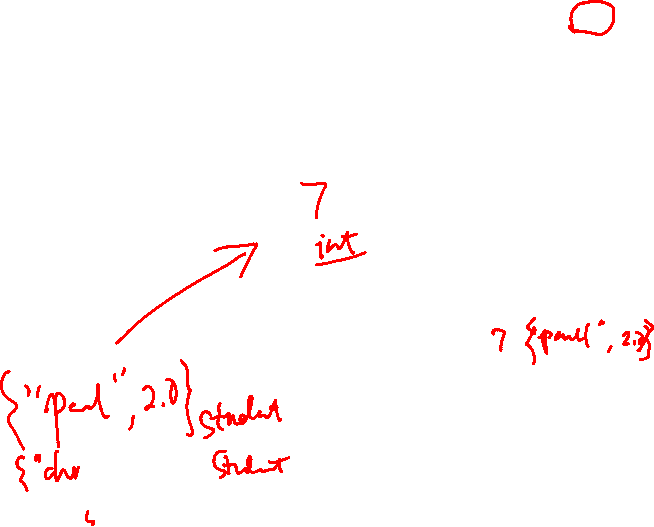 7
int
7 {"paul", 2.0}
{"paul", 2.0} Student
{"chr Student